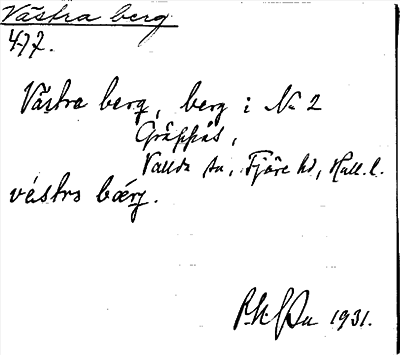 Västra berg
477.
Västra berg, berg i N= 2
Gräppås,
Vallda sn, Fjäre hd, Hall. l.
västra bærg.
1931.